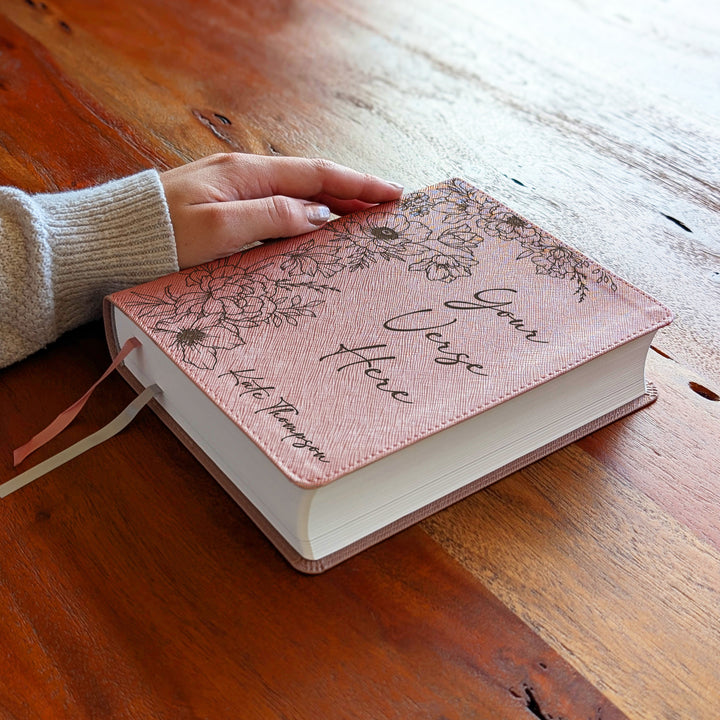 Your
Verse
Here
Kate Thompson